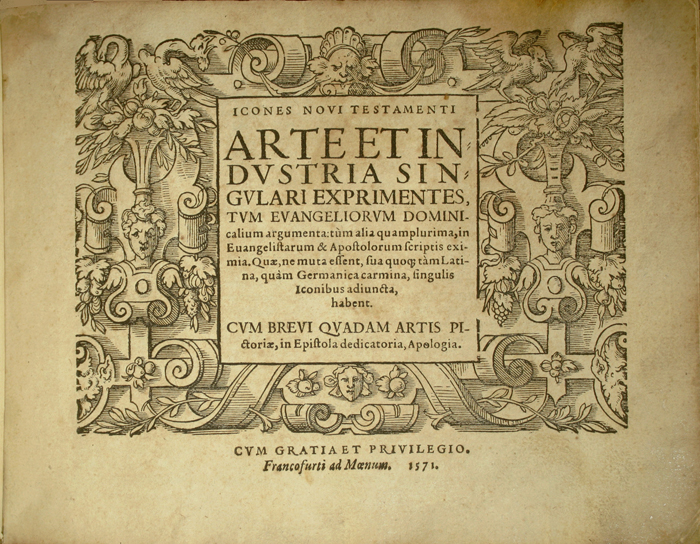 ICONES NOVI TESTAMENTI
ARTE ET IN-
DVSTRIA SIN-
GVLARI EXPRIMENTES,
TVM EVANGELIORVM DOMINI-
calium argumenta: tùm alia quamplurima, in
Euangeliſtarum & Apoſtolorum ſcriptis exi-
mia. Quæ, ne muta eſſent, ſua quoq; tàm Lati-
na, quàm Germanica carmina, ſingulis
Iconibus adiuncta,
habent.
CVM BREVI QVADAM ARTIS PI-
ctoriæ, in Epiſtola dedicatoria, Apologia.
CVM GRATIA ET PRIVILEGIO.
Francofurti ad Mœnum. 1571.